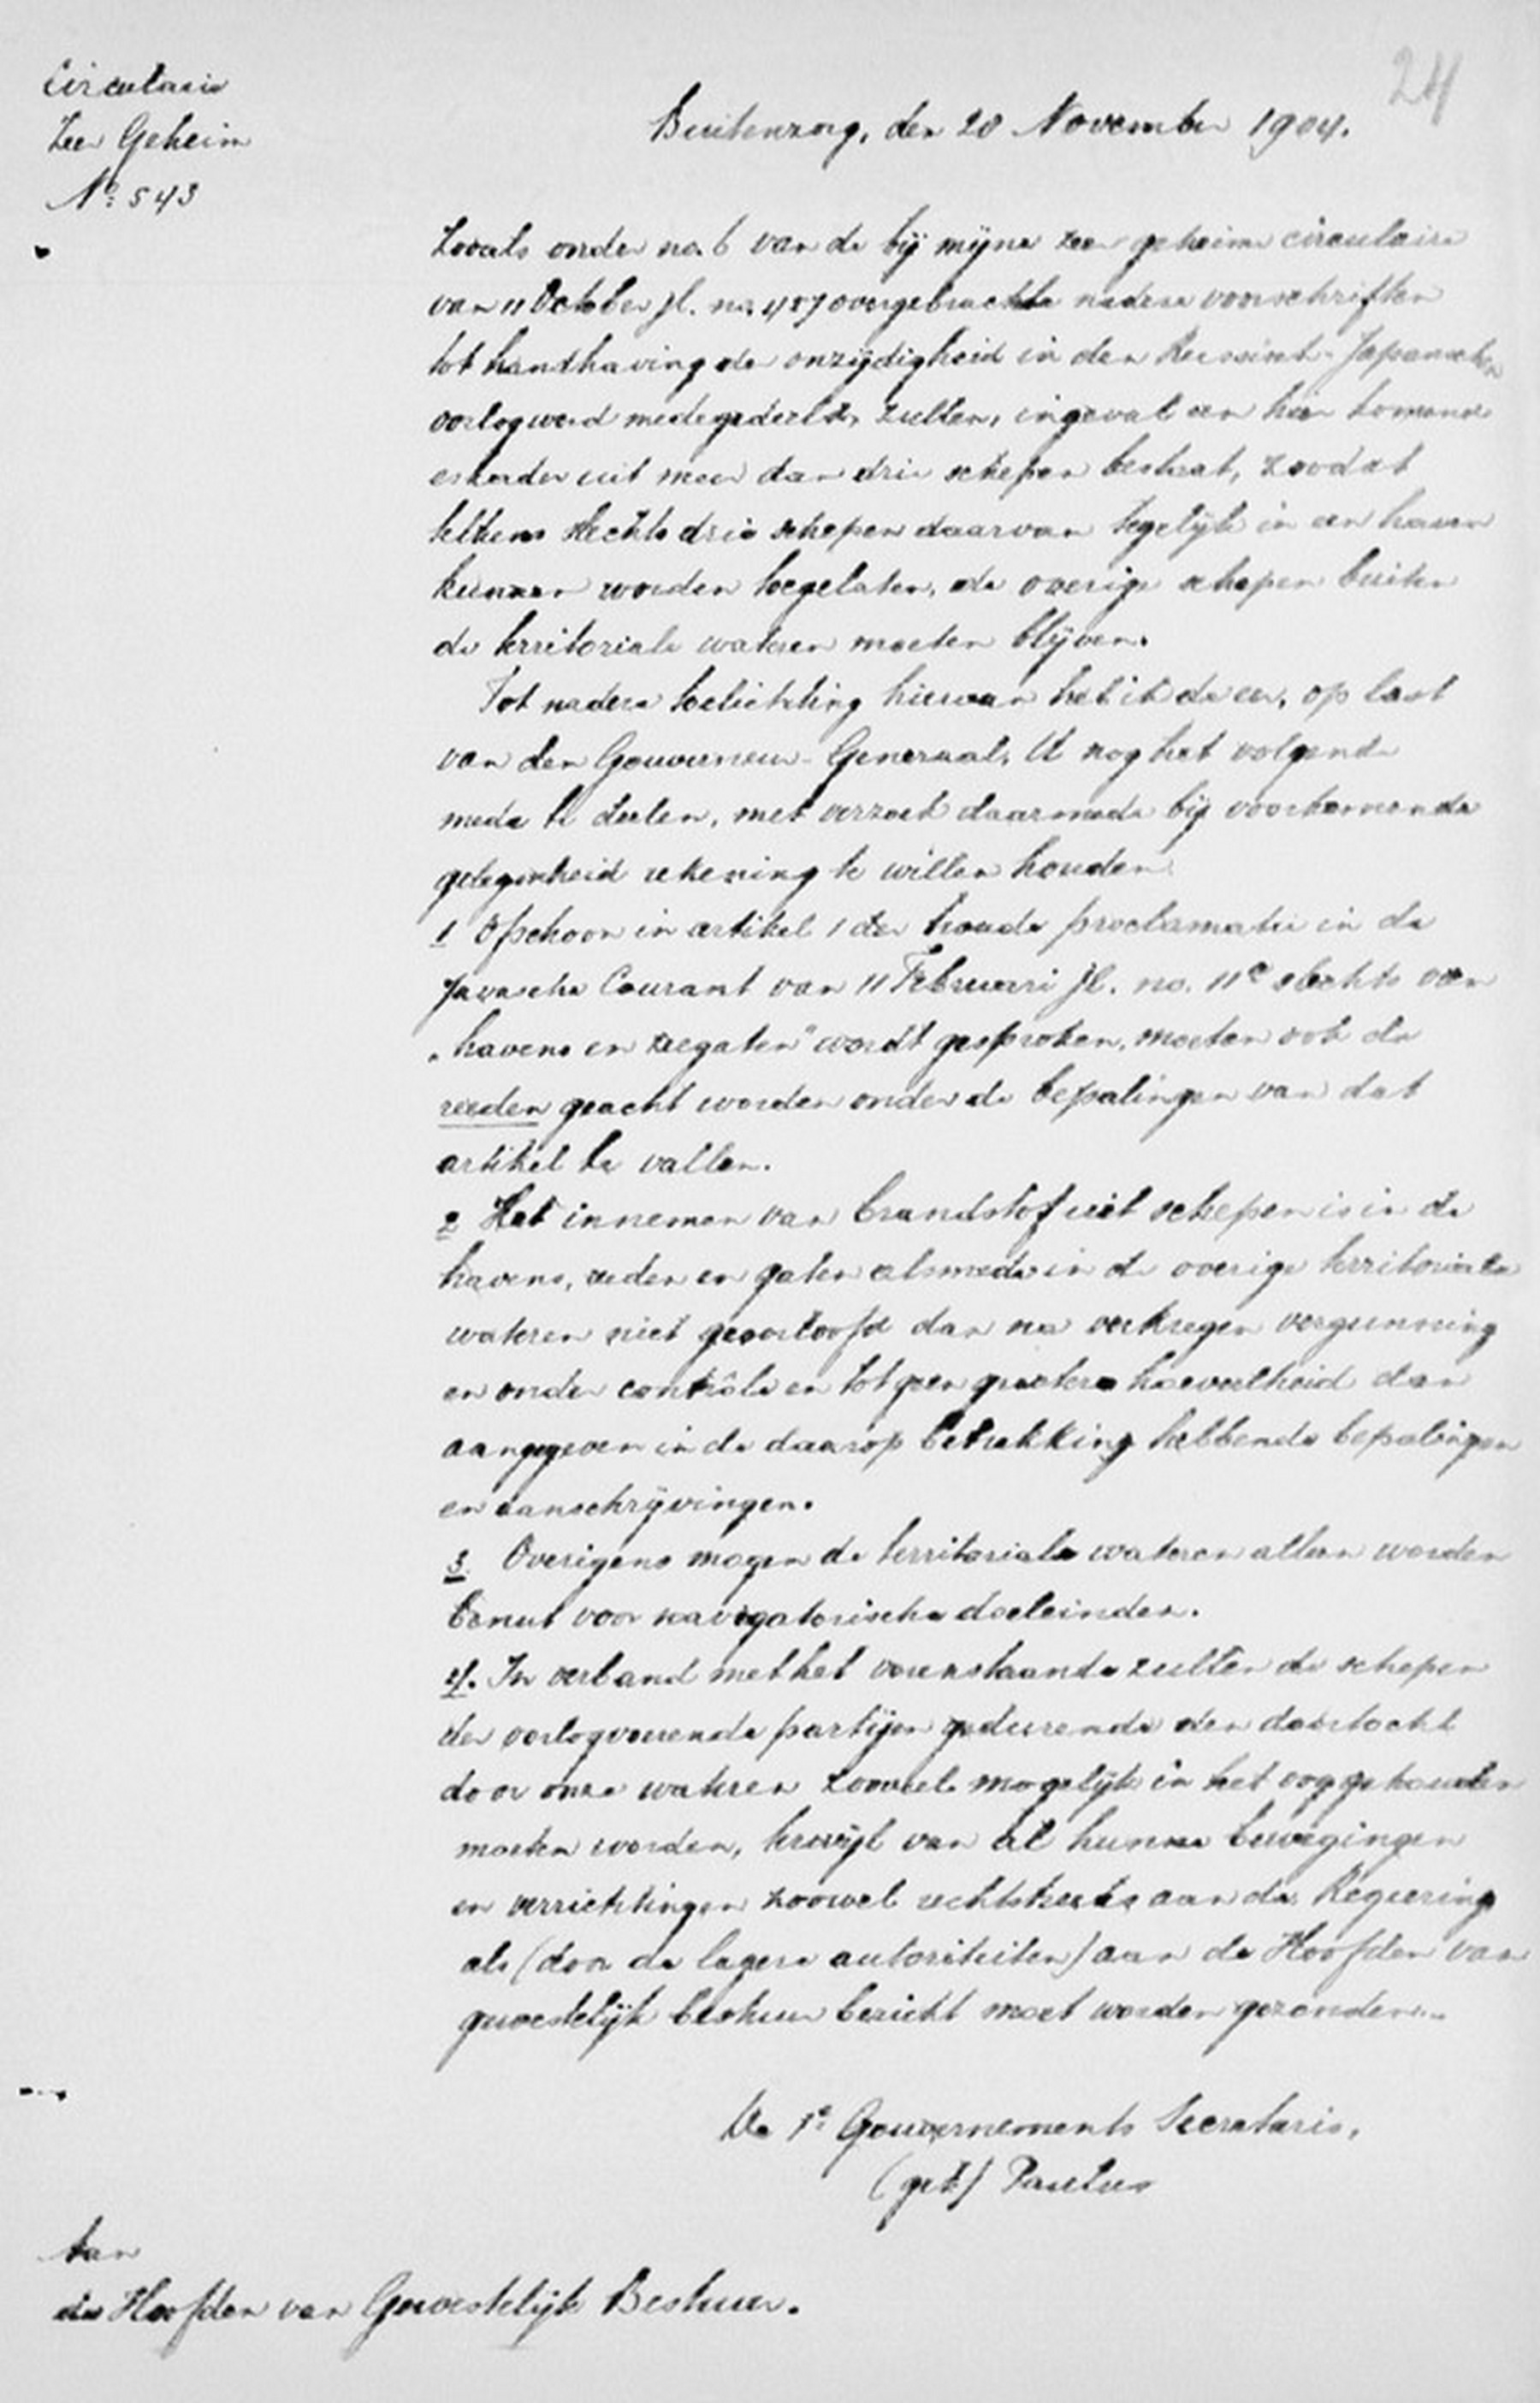 24
Circulaire
Zeer Geheim
No: 543
Buitenzorg, den 20 November 1904.
Zooals onder no. 6 van de bij mijne zeer geheime circulaire
van 11 October jl. no. 487 overgebrachte nadere voorschriften
tot handhaving der onzijdigheid in den Russisch-Japanschen
oorlog werd medegedeeld, zullen, ingeval een hier komend
eskader uit meer dan drie schepen bestaat, zoodat
telkens slechts drie schepen daarvan tegelijk in een haven
kunnen worden toegelaten, de overige schepen buiten
de territoriale wateren moeten blijven.
Tot nadere toelichting hiervan heb ik de eer, op last
van den Gouverneur-Generaal, U nog het volgende
mede te deelen, met verzoek daarmede bij voorkomende
gelegenheid rekening te willen houden
1 Ofschoon in artikel 1 der proclamatie in de
Javasche Courant van 11 Februari jl. no. 11a slechts van
„havens en zeegaten" wordt gesproken, moeten ook de
reeden geacht worden onder de bepalingen van dat
artikel te vallen.
2 Het innemen van brandstof uit schepen is in de
havens, reeden en gaten alsmede in de overige territoriale
wateren niet geoorloofd dan na verkregen vergunning
en onder contrôle en tot geen grootere hoeveelheid dan
aangegeven in de daarop betrekking hebbende bepalingen
en aanschrijvingen.
3. Overigens mogen de territoriale wateren alleen worden
benut voor navigatorische doeleinden.
4. In verband met het vorenstaande zullen de schepen
der oorlogvoerende partijen gedurende den doortocht
door onze wateren zooveel mogelijk in het oog gehouden
moeten worden, terwijl van al hunne bewegingen
en verrichtingen zoowel rechtstreeks aan de Regeering
als (door de lagere autoriteiten) aan de Hoofden van
gewestelijk bestuur bericht moet worden gezonden.
De 1e Gouvernements Secretaris,
(get) Paulus
Aan
de Hoofden van Gewestelijk Bestuur.